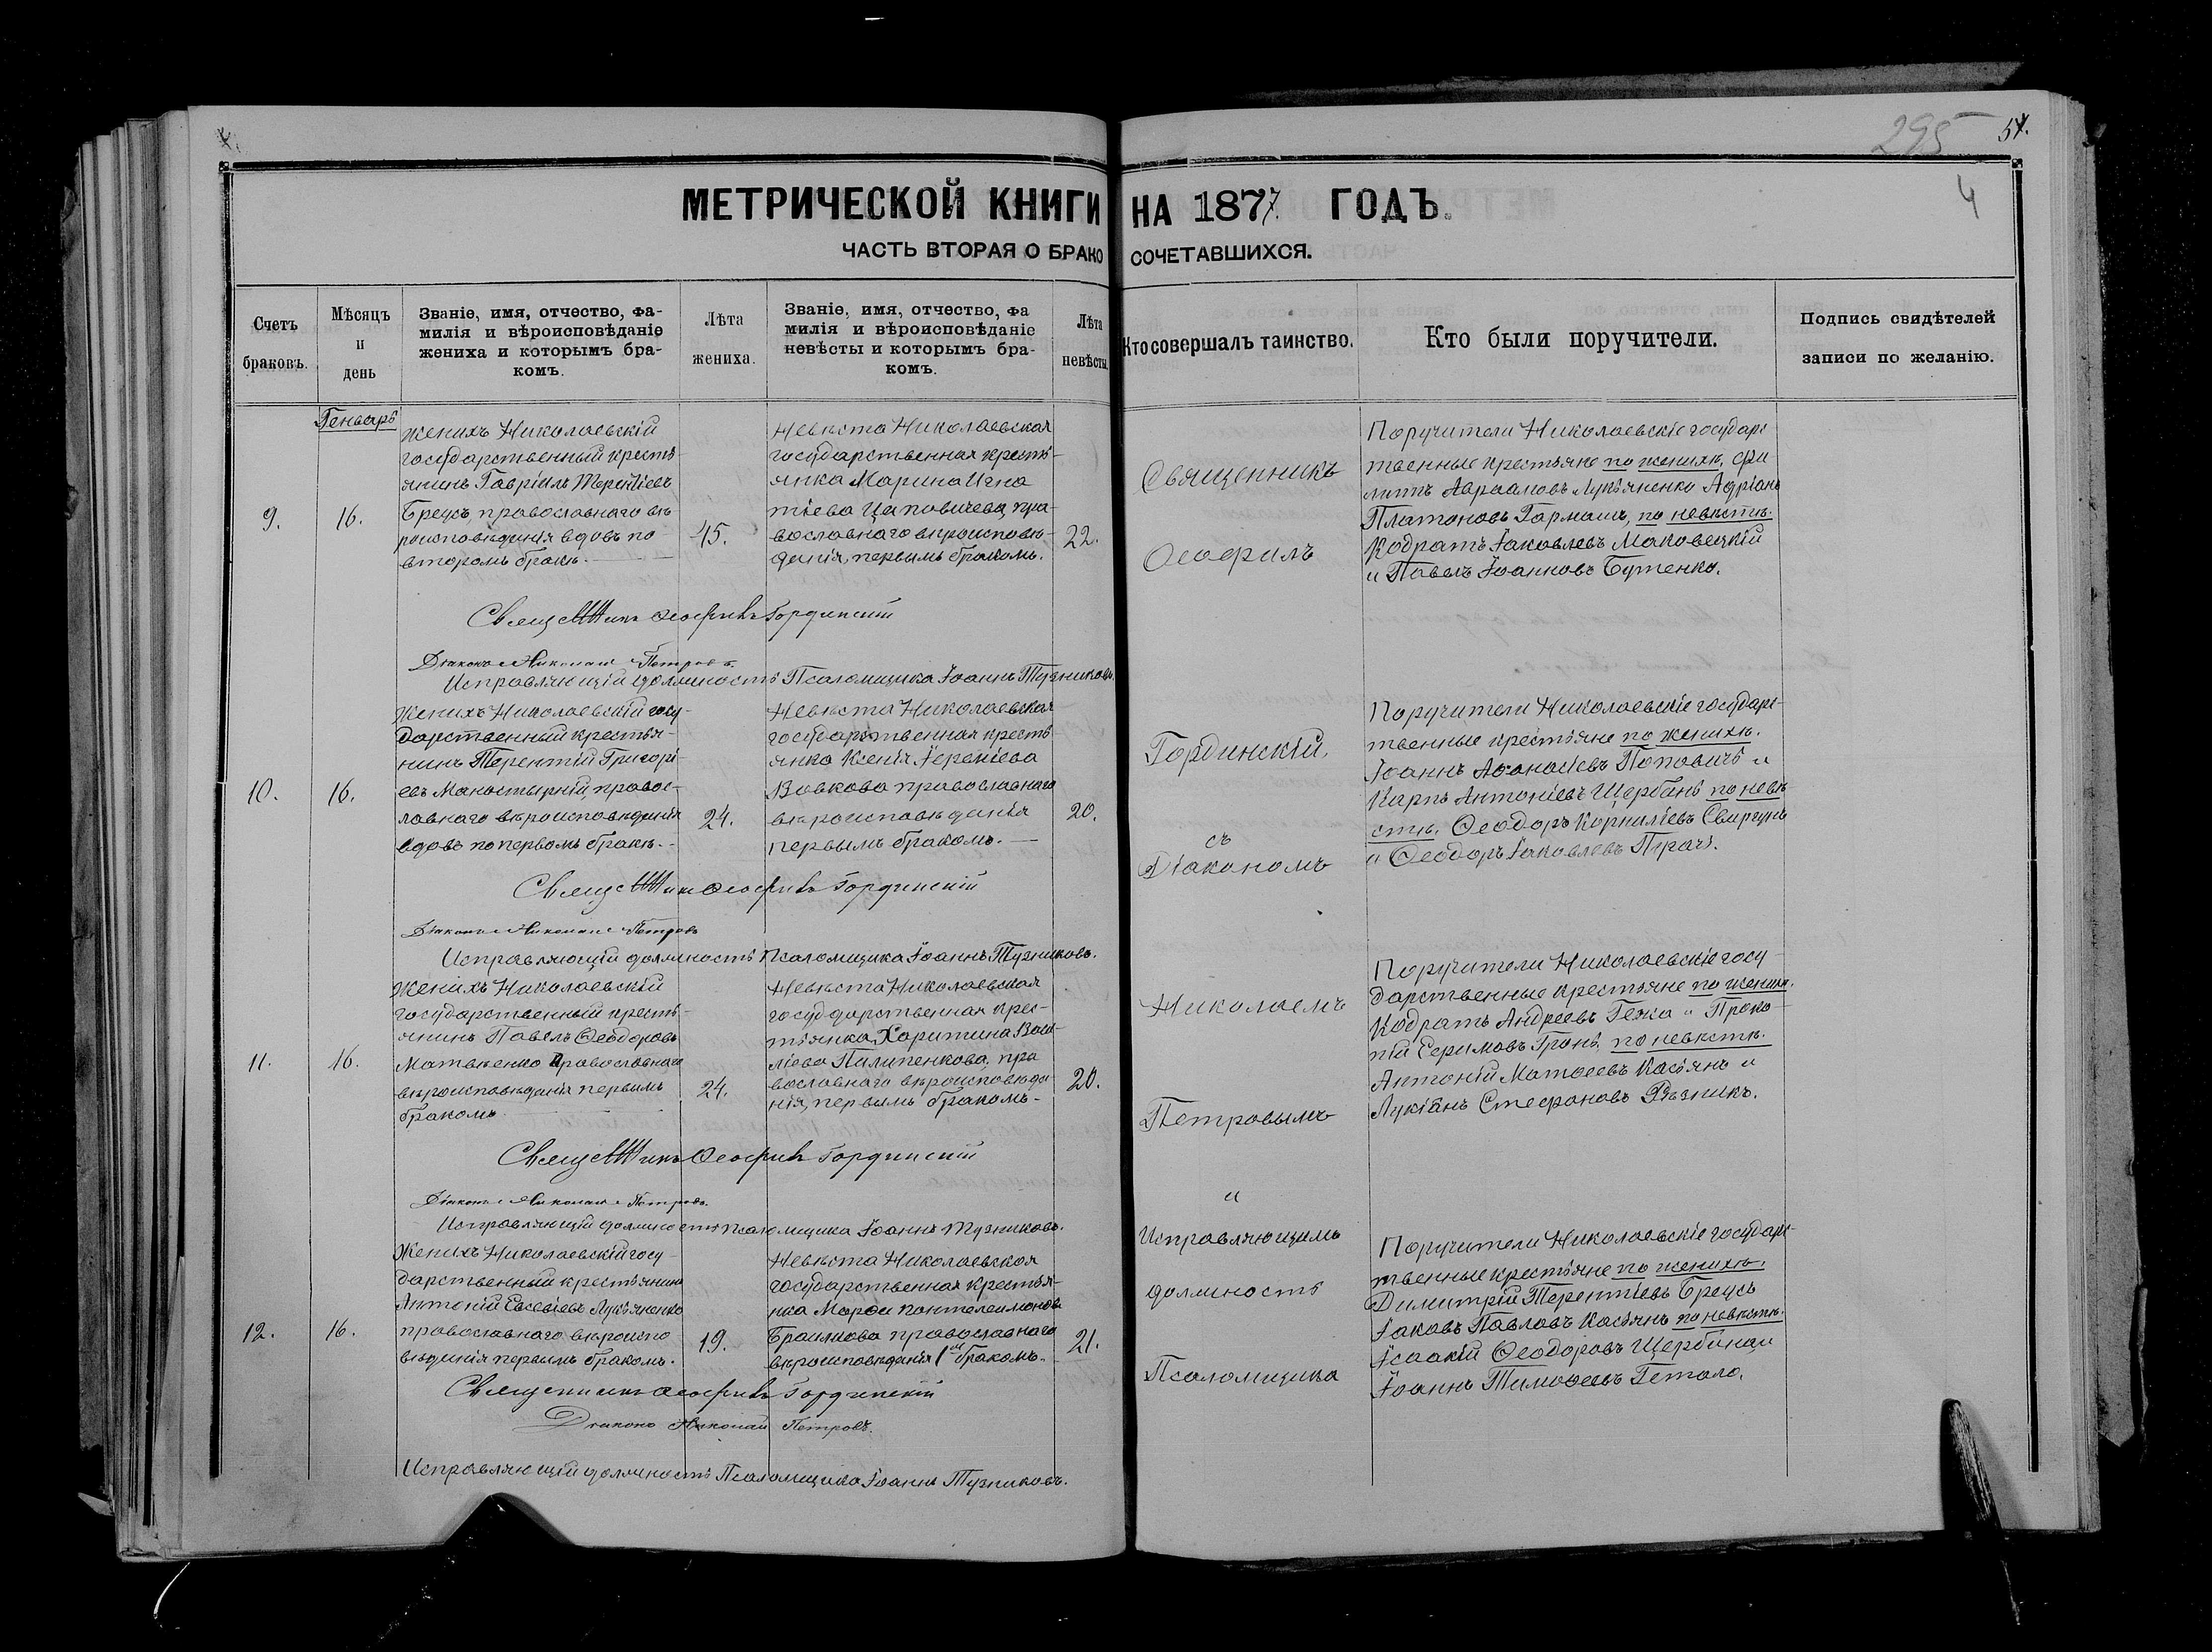 295
54.
4
МЕТРИЧЕСКОЙ КНИГИ НА 1877 ГОДЪ.
ЧАСТЬ ВТОРАЯ О БРАКО СОЧЕТАВШИХСЯ.
Счетъ браковъ.
Мѣсяцъ и день
Званіе, имя, отчество, фа-
милія и вѣроисповѣданіе
жениха и которымъ бра-
комъ.
Лѣта жениха.
Званіе, имя, отчество, фа
милія и вѣроисповѣданіе
невѣсты и которымъ бра-
комъ.
Лѣта невѣсты
Кто совершалъ таинство.
Кто были поручители.
Подпись свидѣтелей
записи по желанію.
Генварь
9.
16.
Женихъ Николаевскій
государственный кресть-
янинъ Гавріилъ Терентіевъ
Бреусъ, православнаго вѣ
роисповѣданія вдовъ по
второмъ бракѣ.
45.
Невѣста Николаевская
государственная кресть-
янка Марина Игна
тіева Цаповичева, пра-
вославнаго вѣроисповѣ-
данія, первымъ бракомъ.
22.
Поручители Николаевскіе государс
твенные крестьяне по женихѣ, Фи
липпъ Авраамовъ Лукьяненко Адріанъ
Платоновъ Гармашъ, по невѣстѣ.
Кодратъ Іаковлевъ Маковецкій
и Павелъ Іоанновъ Бутенко.
Священникъ Ѳеофилъ Гординскій
Діаконъ Николай Петровъ.
Исправляющій должность Псаломщика Іоаннъ Тузниковъ.
10.
16.
Женихъ Николаевскій госу-
дарственный крестья-
нинъ Терентій Григорі-
евъ Манастырній, правос-
лавнаго вѣроисповѣданія
вдовъ по первомъ бракѣ.-
24.
Невѣста Николаевская
государственная кресть
янка Ксенія Іереміева
Вовкова православнаго
вѣроисповѣданія
первымъ бракомъ.
20.
Поручители Николаевскіе государс-
твенные крестьяне по женихѣ.
Іоаннъ Аѳанасіевъ Поповичъ и
Карпъ Антоніевъ Щербань по невѣ-
стѣ. Ѳеодоръ Корниліевъ Свиргунъ
и Ѳеодоръ Іаковлевъ Прачъ.
Священникъ Ѳеофилъ Гординскій
Діаконъ Николай Петровъ
Исправляющій должность Псаломщика Іоаннъ Тузниковъ.
11.
16.
Женихъ Николаевскій
государственный кресть-
янинъ Павелъ Ѳеодоровъ
Матвѣенко Православнаго
вѣроисповѣданія первымъ
бракомъ
24.
Невѣста Николаевская
государственная крес-
тьянка Харитина Васи-
ліева Пилипенкова, пра
вославнаго вѣроисповѣда
нія, первымъ бракомъ-
20.
Поручители Николаевскіе госу-
дарственные крестьяне по женихѣ.
Кодратъ Андреевъ Гежа и Проко-
пій Ефимовъ Гронь, по невѣстѣ.
Антоній Матѳеевъ Касьянъ и
Лукіанъ Стефановъ Рѣзникъ.
Священникъ Ѳеофилъ Гординскій
Діаконъ Николай Петровъ.
Исправляющій должность Псаломщика Іоаннъ Тузниковъ.
12.
16.
Женихъ Николаевскій госу-
дарственный крестьянинъ
Антоній Евсевіевъ Лукьяненко
православнаго вѣроиспо
вѣданія первымъ бракомъ.
19.
Невѣста Николаевская
государственная крестья-
нка Марѳа Пантелеимонова
Браилкова православнаго
вѣроисповѣданія 1ым бракомъ.
21.
Поручители Николаевскіе государс-
твенные крестьяне по женихѣ.
Димитрій Терентіевъ Бреусъ
Іаковъ Павловъ Касьянъ по невѣстѣ.
Ісаакій Ѳеодоровъ Щербина и
Іоаннъ Тимоѳеевъ Гетало.
Священникъ Ѳеофилъ Гординскій
Діаконъ Николай Петровъ.
Исправляющій должность Псаломщика Іоаннъ Тузниковъ.
Священникъ
Ѳеофилъ
Гординскій,
съ
Діакономъ
Николаемъ
Петровымъ
и
Исправляющимъ
должность
Псаломщика